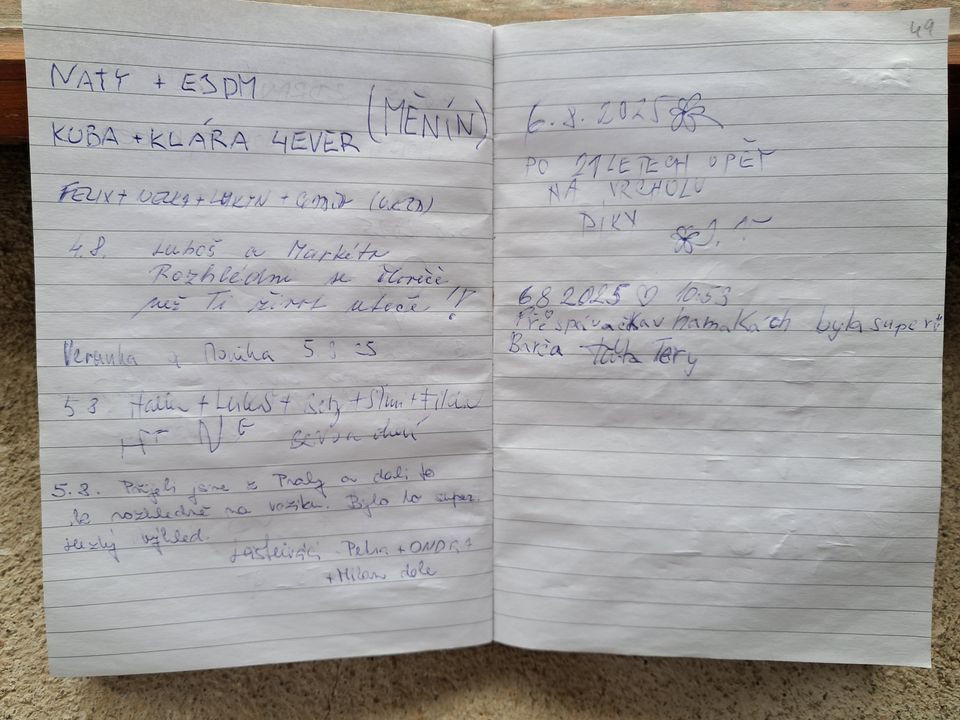 NATY + EJDM
KUBA + KLÁRA 4EVER (MĚNÍN)
FELIX+
4.8. Luboš a Markéta
Rozhlédni se
než Ti život uteče!!
Verunka a Monika 5 8 25
5 8. + Lukáš +
5.8. Přijeli jsme z Prahy a dali to
k rozhledně na vozíku. Bylo to super.
Hezký výhled.
Petra + ONDRA
+ Milan dole
49
6.8.2025
PO 21 LETECH OPĚT
NA VRCHOLU
DÍKY
6.8 2025 ♡ 10:53
Přespávačka v hamakách byla super
Barča Táta Tery